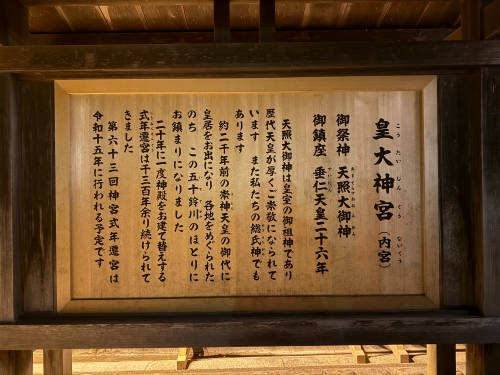 皇大神宮（内宮）
こうたいじんぐう　ないくう
御祭神　天照大御神
あまてらすおおみかみ
御鎮座　垂仁天皇二十六年
すいにん
天照大御神は皇室の御祖神であり
歴代天皇が厚くご崇敬になられて
います　また私たちの総氏神でも
あります
約二千年前の崇神天皇の御代に
皇居をお出になり　各地をめぐられた
のち　この五十鈴川のほとりに
お鎮まりになりました
二十年に一度神殿をお建て替えする
式年遷宮は千三百年余り続けられて
きました
第六十三回神宮式年遷宮は
令和十五年に行われる予定です